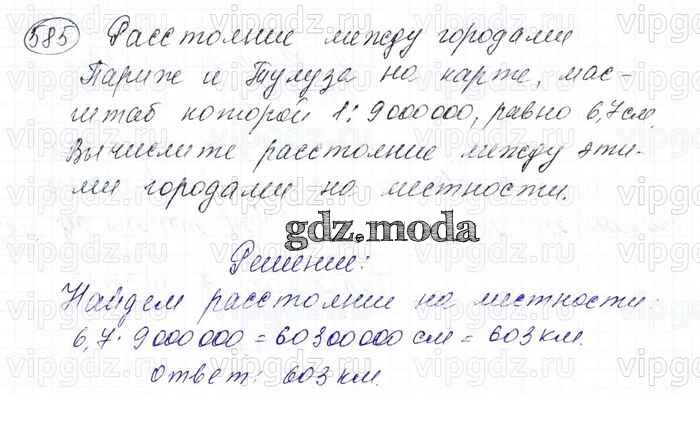 585 Расстояние между городами
Париж и Тулуза на карте, мас-
штаб которой 1:9000000, равно 6,7см.
Вычислите расстояние между эти-
ми городами на местности.
gdz.moda
Решение:
Найдем расстояние на местности:
6,7·9000000=60300000см=603км.
Ответ: 603км.
vipgdz